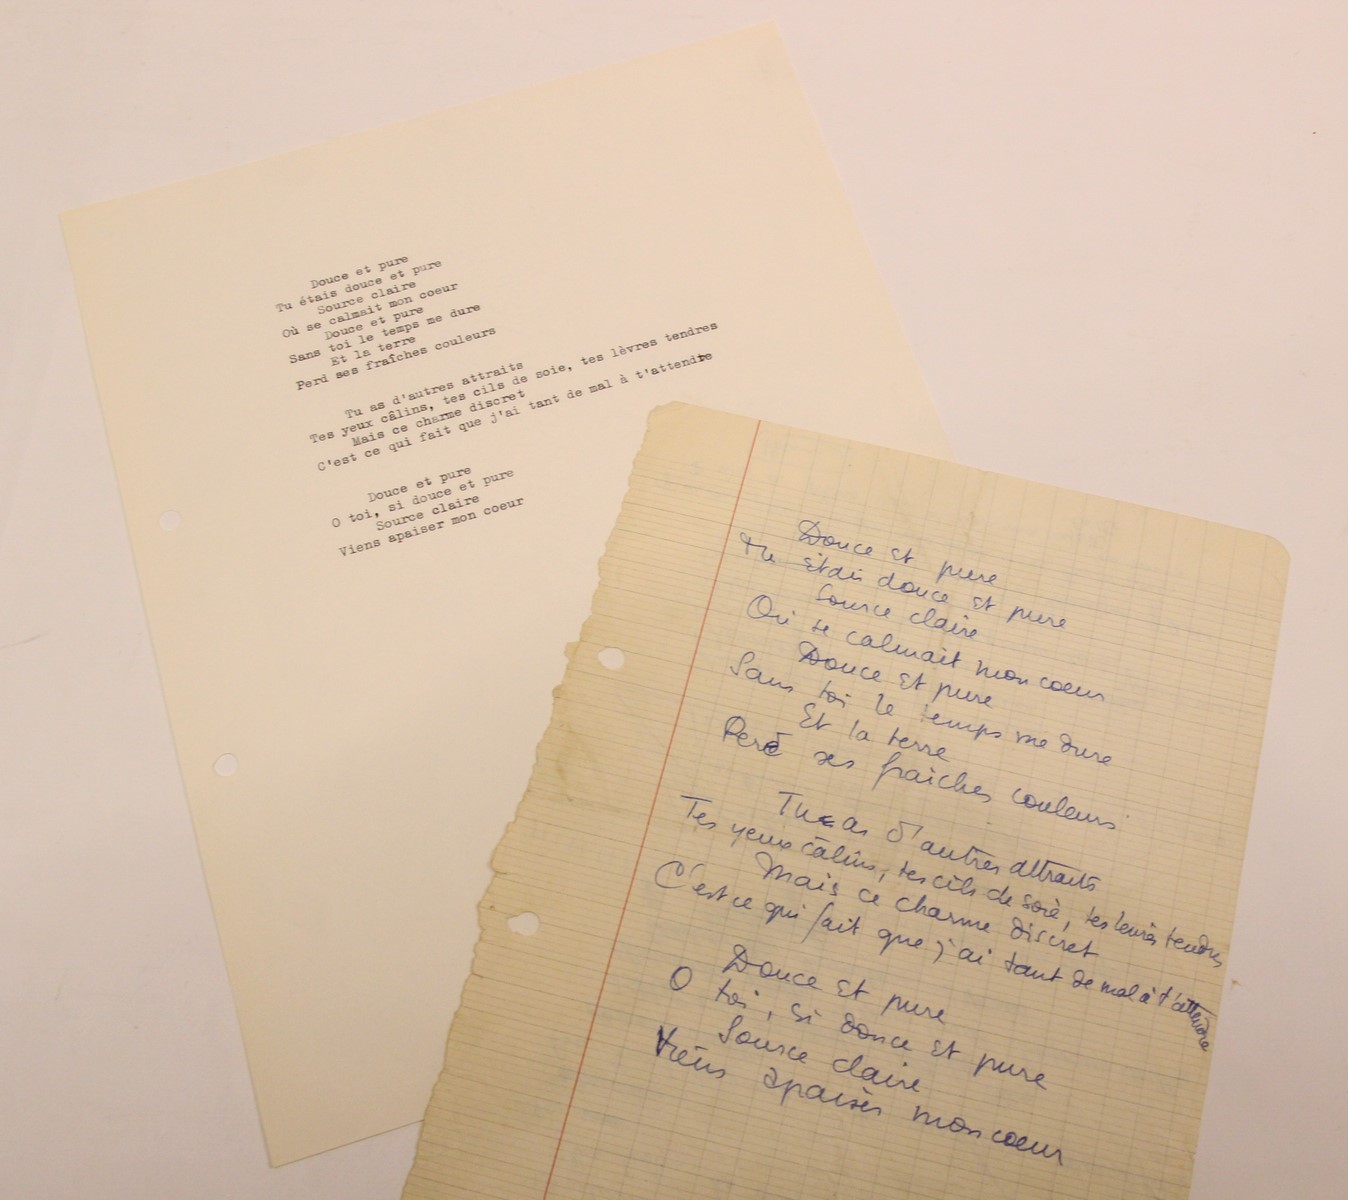 Douce et pure
Tu étais douce et pure
Source claire
Où se calmait mon coeur
Douce et pure
Sans toi le temps me dure
Et la terre
Perd ses fraîches couleurs
Tu as d'autres attraits
Tes yeux câlins, tes cils de soie, tes lèvres tendres
Mais ce charme discret
C'est ce qui fait que j'ai tant de mal à t'attendre
Douce et pure
O toi, si douce et pure
Source claire
Viens apaiser mon coeur
Douce et pure
Tu étais douce et pure
Source claire
Où se calmait mon coeur
Douce et pure
Sans toi le temps me dure
Et la terre
Perd ses fraîches couleurs
Tu as d'autres attraits
Tes yeux câlins, tes cils de soie, tes lèvres tendres
Mais ce charme discret
C'est ce qui fait que j'ai tant de mal à t'attendre
Douce et pure
O toi, si douce et pure
Source claire
Viens apaiser mon coeur